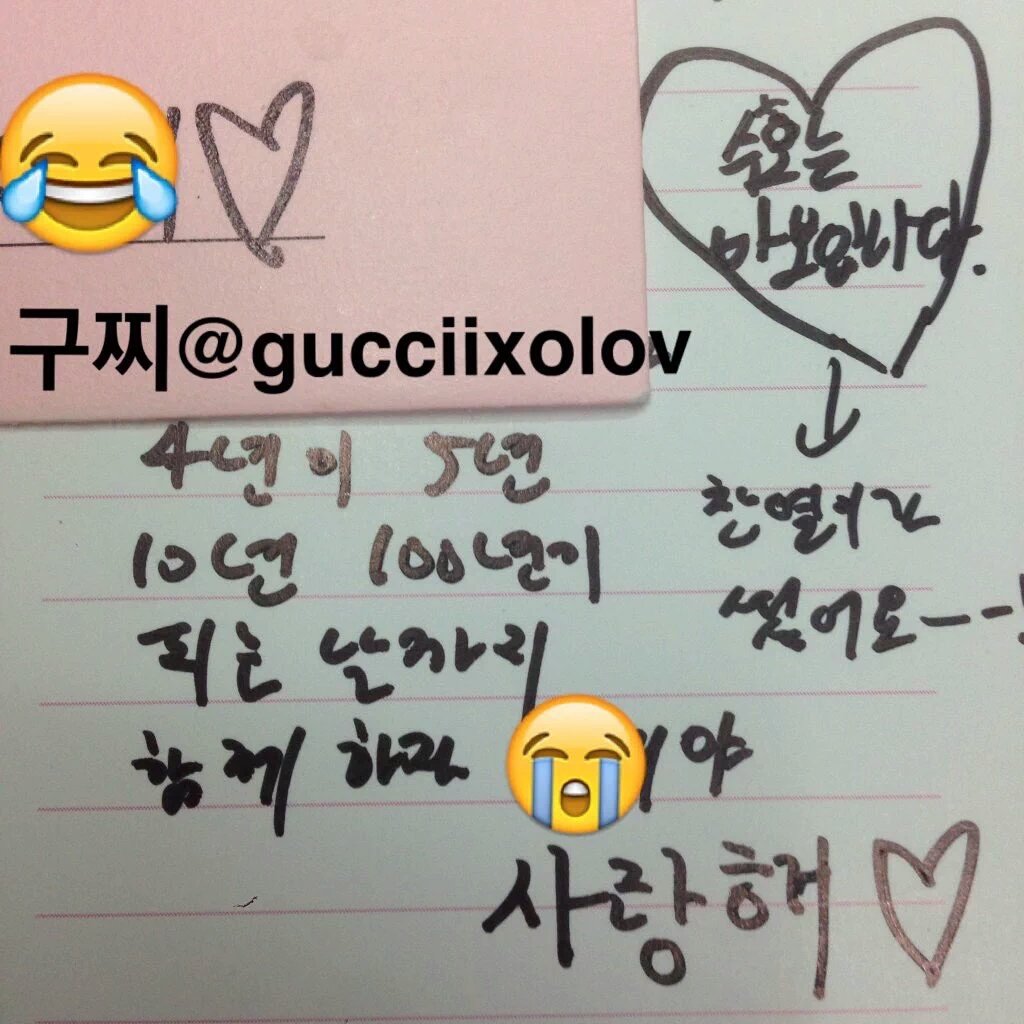 수호는
바보입니다.
구찌@gucciixolov
찬열이가
썼어요--!
4년이 5년
10년 100년이
되는 날까지
함께 하자 야
사랑해♡